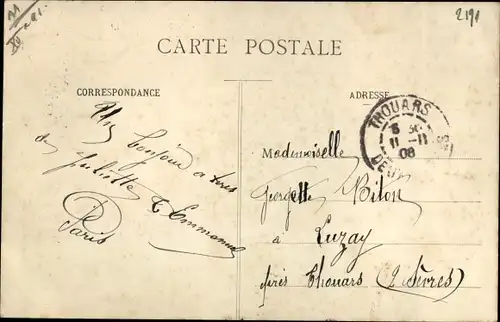 2191
CARTE POSTALE
CORRESPONDANCE
ADRESSE
THOUARS
8 30
11 -11
08
Un bonjour a tous
de Juliette & Emmanuel
Paris
Mademoiselle
Georgette Biton
à Luzay
près Thouars (2 Sèvres)